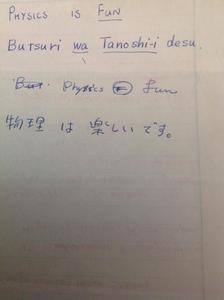 PHYSICS IS FUN
Butsuri wa Tanoshi-i desu.
Physics = fun
物理 は 楽しいです。